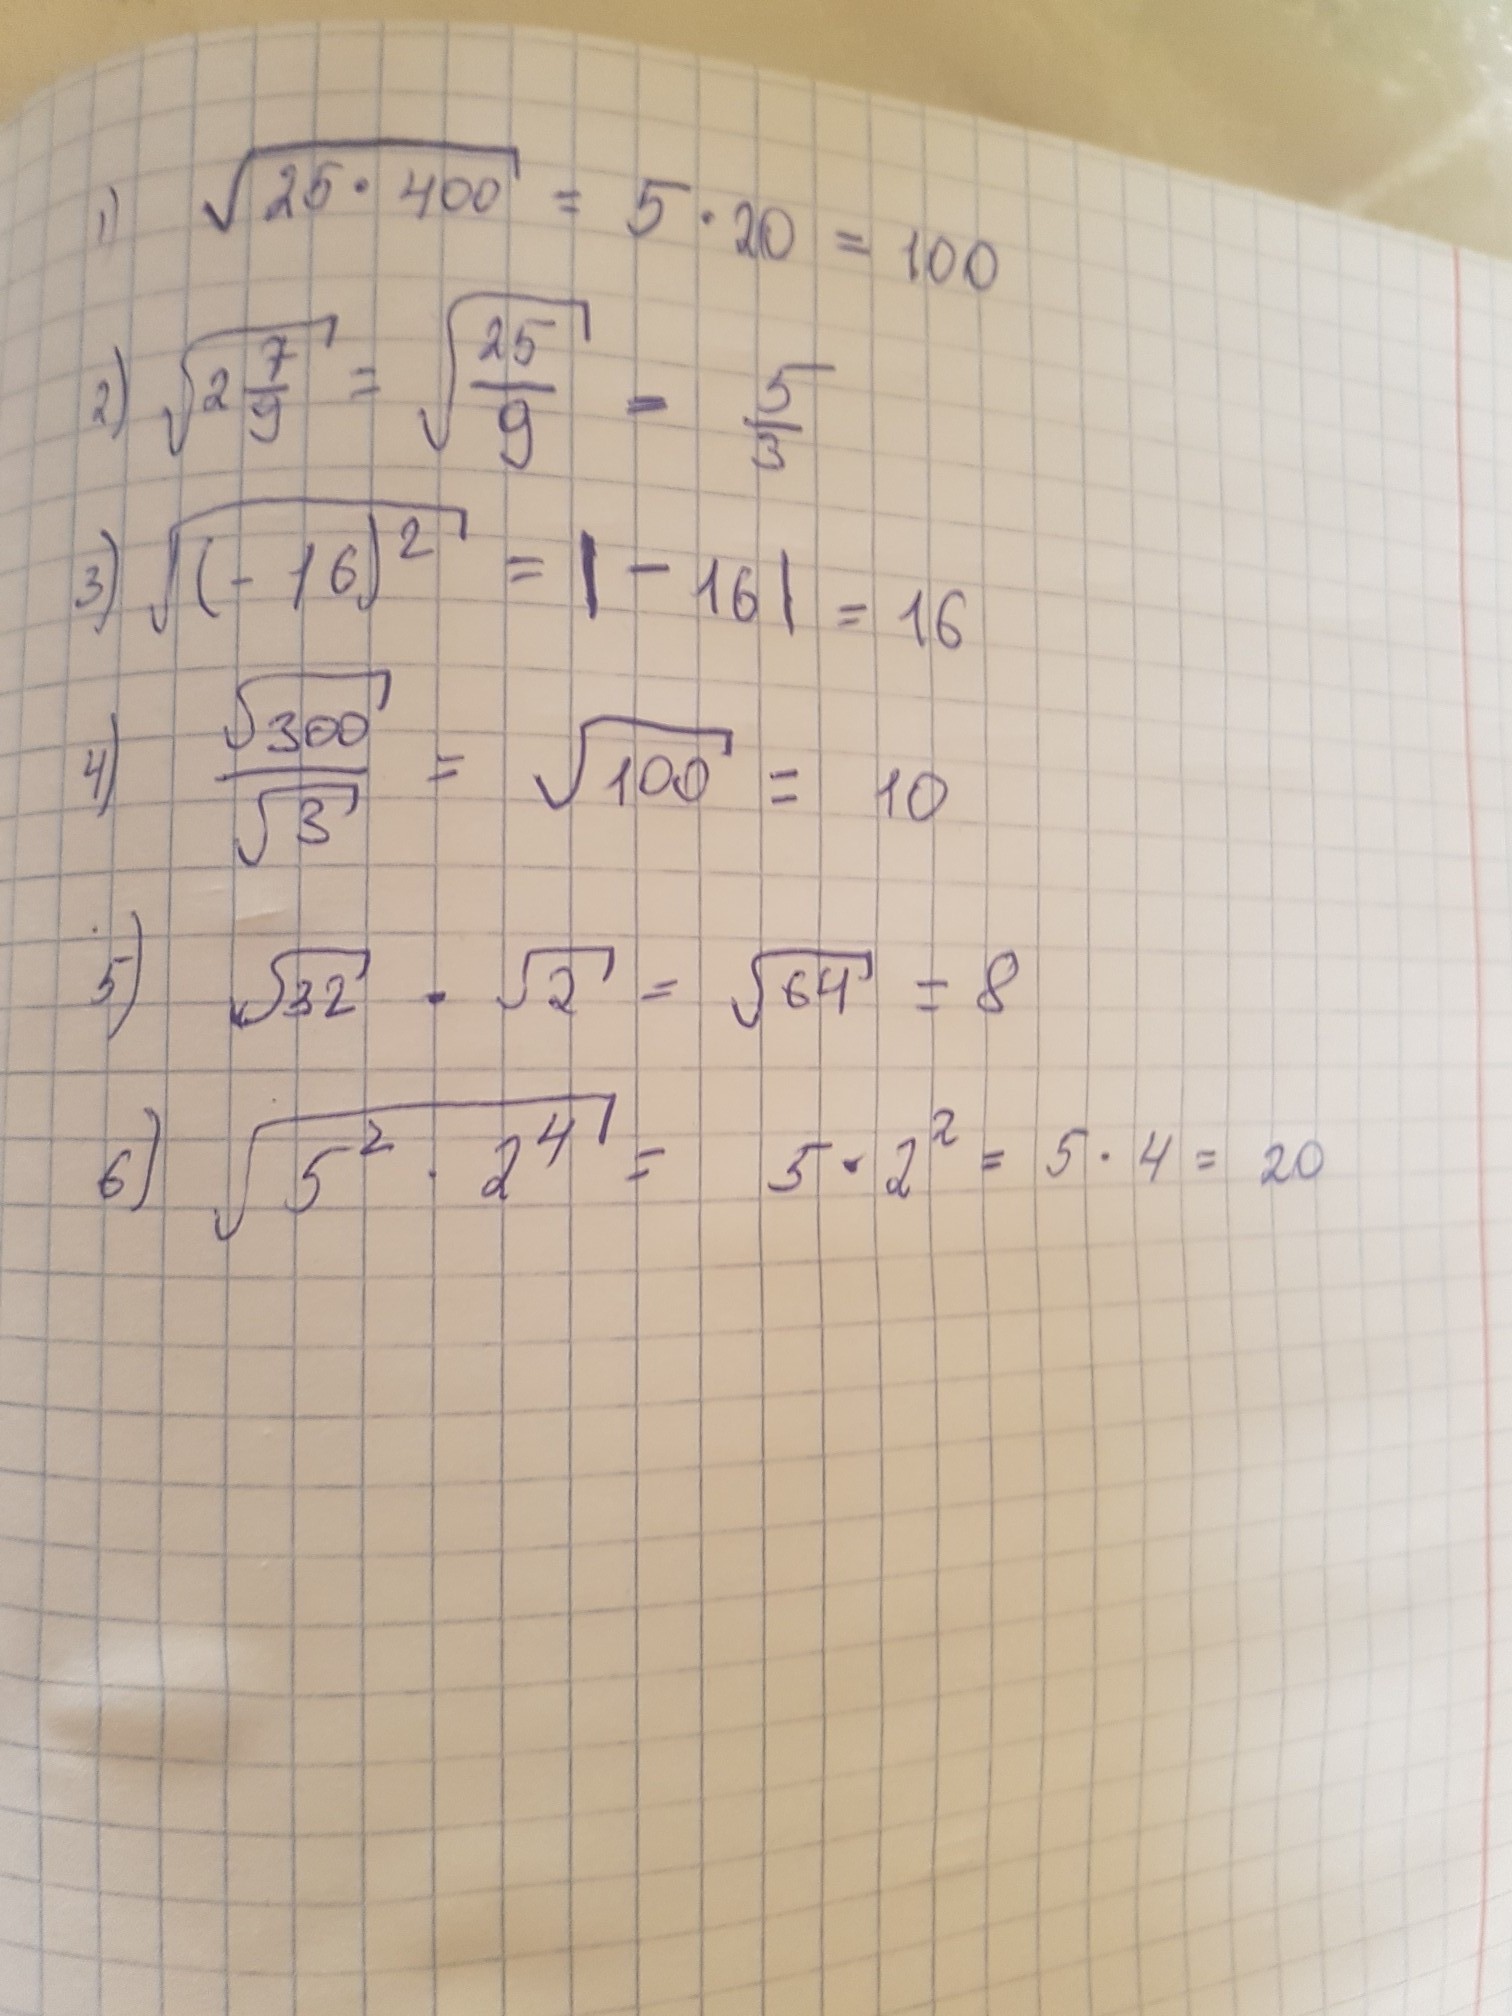 1) √(25·400) = 5·20 = 100
2) √(2 7/9) = √(25/9) = 5/3
3) √((-16)²) = |-16| = 16
4) √300/√3 = √100 = 10
5) √32 · √2 = √64 = 8
6) √(5²·2⁴) = 5·2² = 5·4 = 20